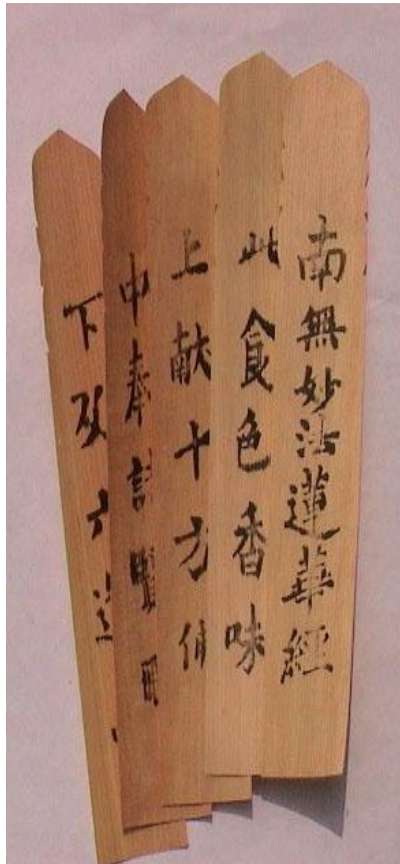 南無妙法蓮華經
此食色香味
上献十方佛
中奉諸賢
下及六道